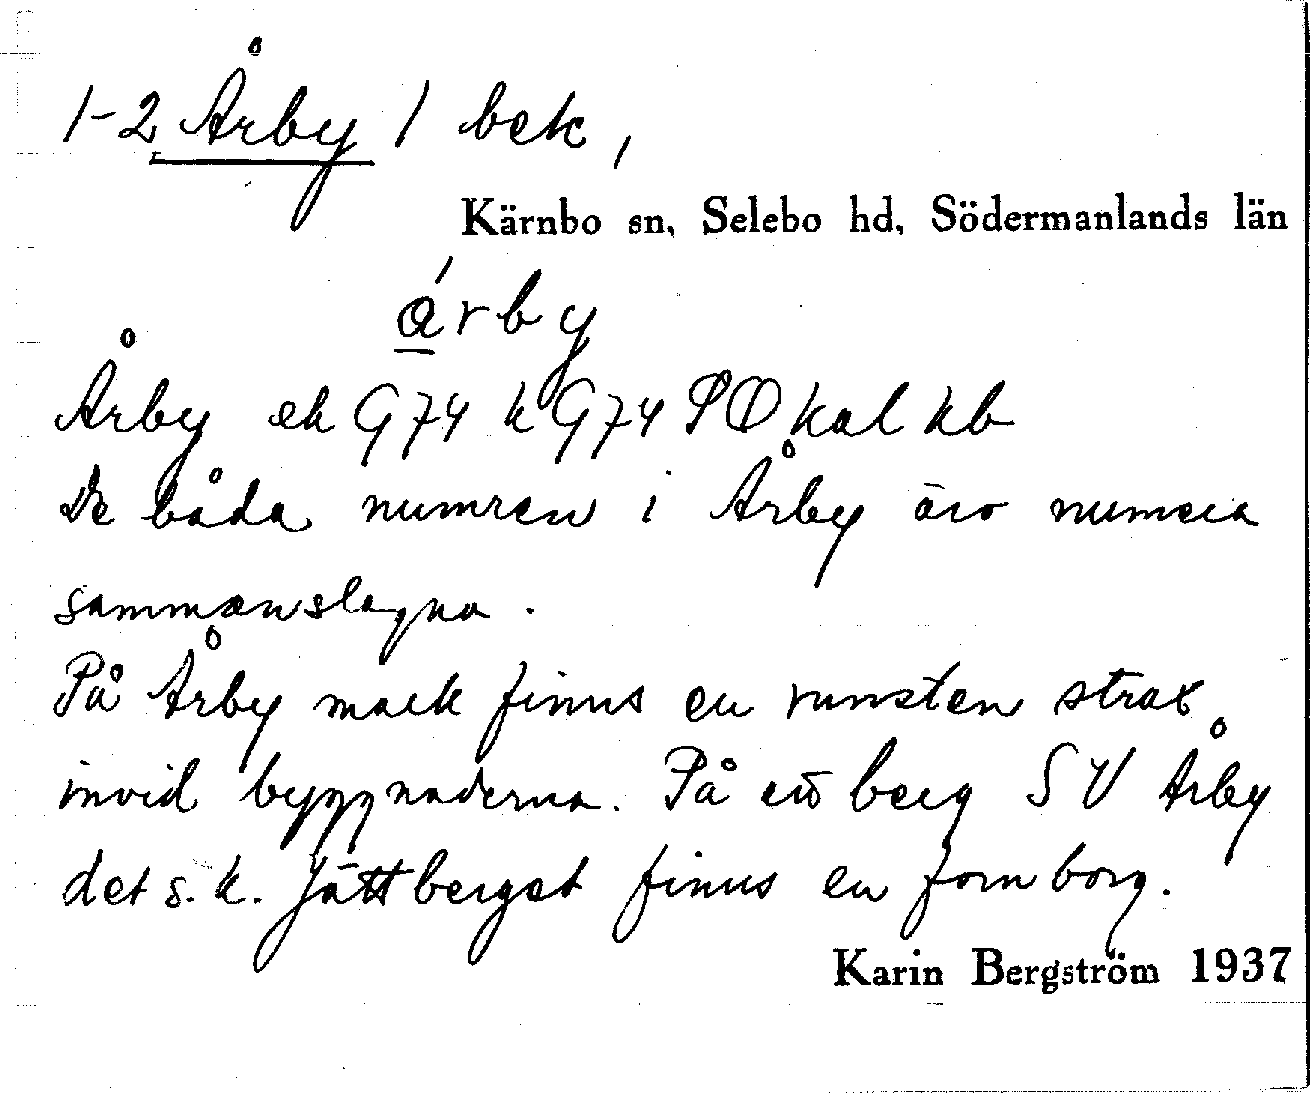 1-2 Årby / bek,
Kärnbo sn, Selebo hd, Södermanlands län
árby
Årby ek G74 k G74 SO kal kb
De båda numren i Årby äro numera
sammanslagna.
På Årby mark finns en runsten strax
invid byggnaderna. På ett berg SV Årby
det s.k. Jättberget finns en fornborg.
Karin Bergström 1937